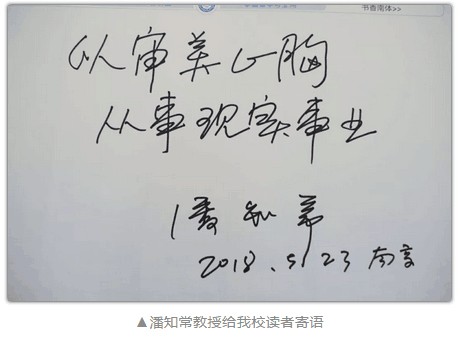 书香南体>>
以审美心胸
从事现实事业
潘知常
2018.5.23 南京
▲潘知常教授给我校读者寄语